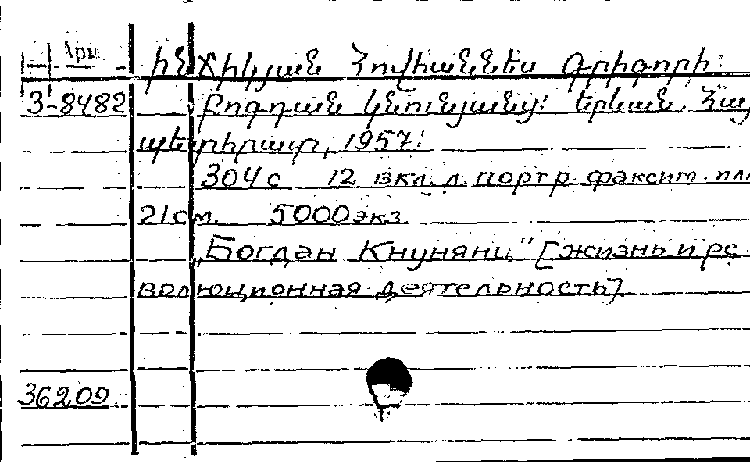 Арм.
ինՃիկյան Հովհաննես Գրիգորի:
3-8482 Բոգդան Կնունյանց: Երևան. Հայ
պետհրատ, 1957:
304 с 12 вкл. л. портр. факсит. пл
21 см. 5000 экз.
"Богдан Кнунянц" [жизнь и ре
волюционная деятельность]
36209